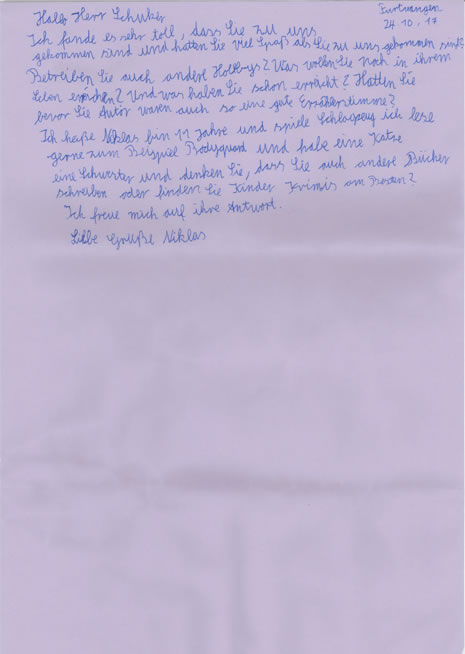 Hallo Herr Schuker
Furtwangen
24.10.17
Ich fande es sehr toll, dass Sie zu uns
gekommen sind und hatten Sie viel Spaß als Sie zu uns gekommen sind?
Betreiben Sie auch andere Hobbys? Was wollen Sie noch in ihrem
Leben ereichen? Und was haben Sie schon erreicht? Hatten Sie
bevor Sie Autor waren auch so eine gute Erzählerstimme?
Ich heiße Niklas bin 11 Jahre und spiele Schlagzeug ich lese
gerne zum Beispiel Bodyguard und habe eine Katze
eine Schwester und denken Sie, dass Sie auch andere Bücher
schreiben oder finden Sie Kinder Krimis am Besten?
Ich freue mich auf ihre Antwort.
Liebe Grüße Niklas